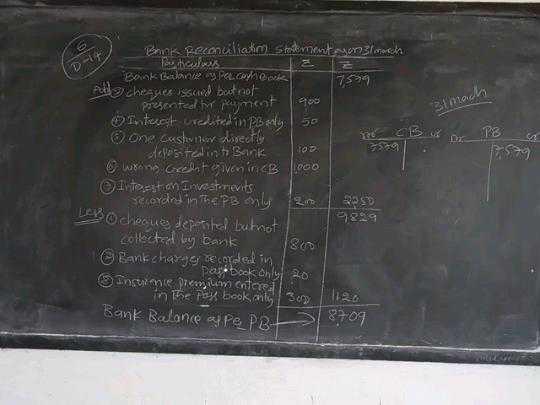 6
D-14
Bank Reconciliation Statement as on 31 march
Particulars ₹ ₹
Bank Balance as Per cash Book 7,579
Add cheques issued but not
presented for payment 900
④ Interest credited in PB only 50
⑤ One customer directly
deposited into Bank 100
⑥ wrong credit given in CB 1000
⑦ Interest on Investments
recorded in the PB only 200 2250
9829
Less ① cheques deposited but not
collected by bank 800
② Bank charges recorded in
pass book only 20
③ Insurance premium entered
in the pass book only 300 1120
Bank Balance as Per PB → 8,709
31 march
Dr CB Cr
7579
Dr PB Cr
7,579